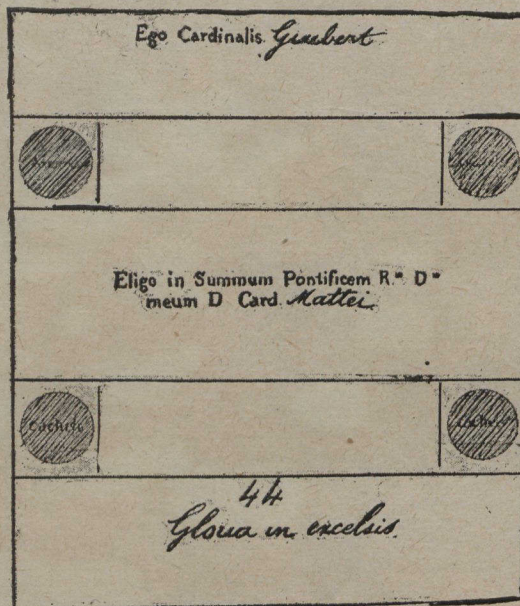 Ego Cardinalis Guibert
Eligo in Summum Pontificem R.ᵐ Dᵐ
meum D Card Mattei
Cachets
44
Gloria in excelsis